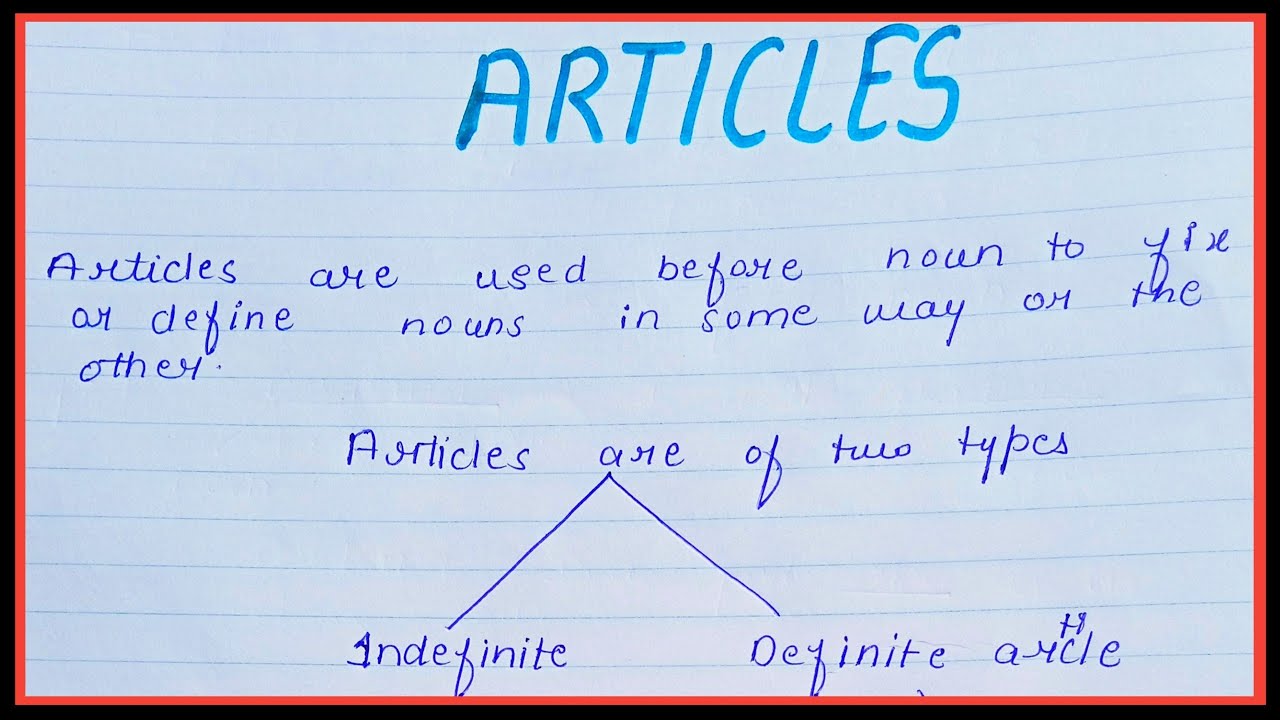 ARTICLES
Articles are used before noun to fix
or define nouns in some way or the
other.
Articles are of two types
Indefinite Definite article